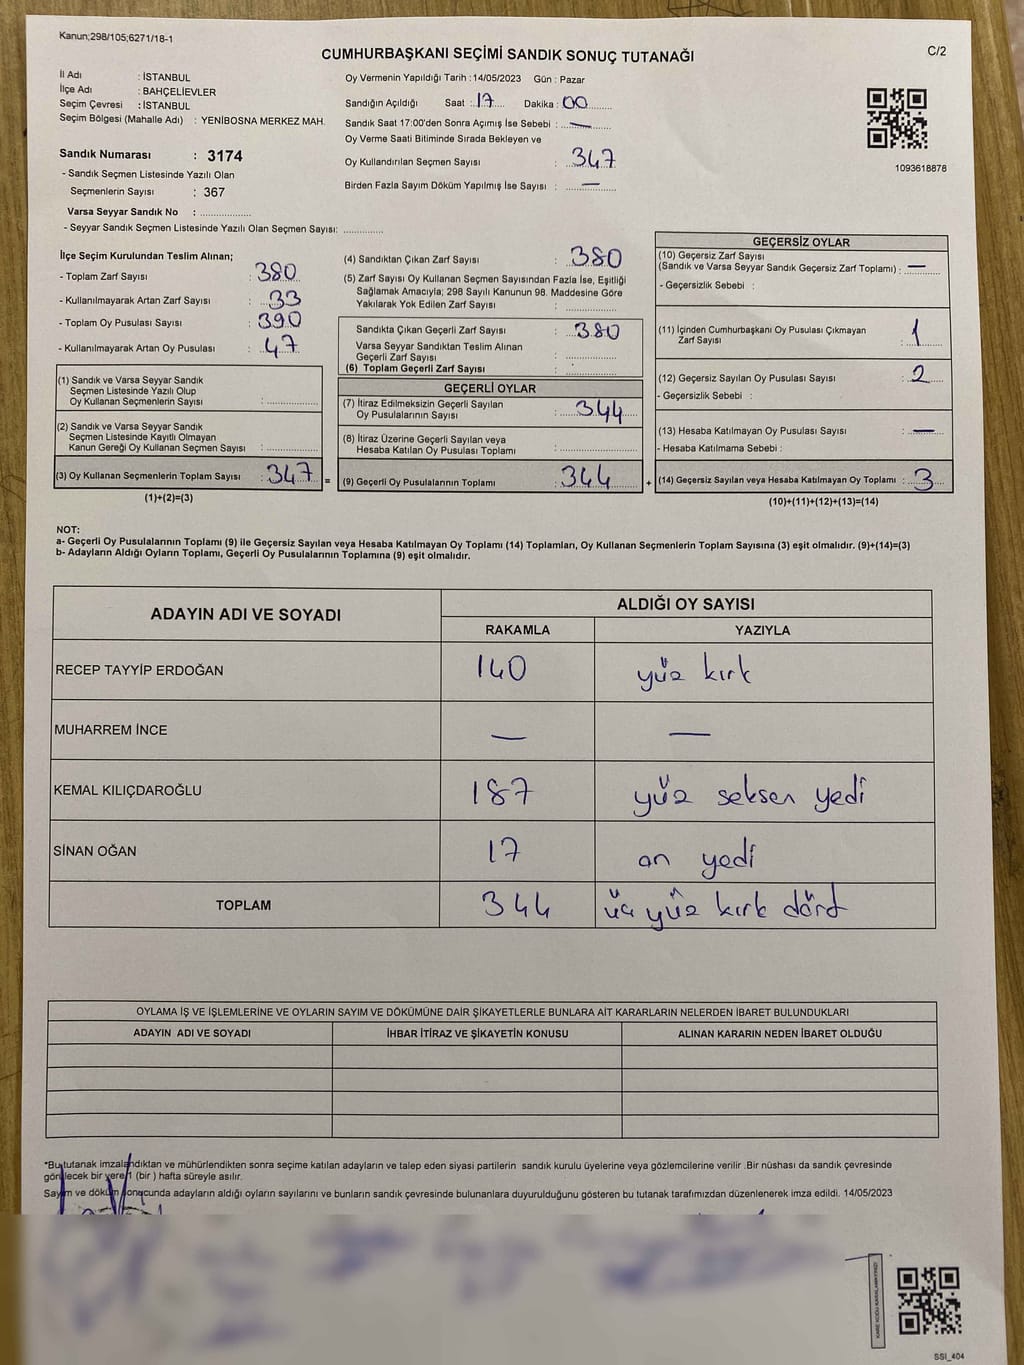 Kanun;298/105;6271/18-1
CUMHURBAŞKANI SEÇİMİ SANDIK SONUÇ TUTANAĞI
C/2
İl Adı : İSTANBUL
İlçe Adı : BAHÇELİEVLER
Seçim Çevresi : İSTANBUL
Seçim Bölgesi (Mahalle Adı) : YENİBOSNA MERKEZ MAH.
Sandık Numarası : 3174
- Sandık Seçmen Listesinde Yazılı Olan
Seçmenlerin Sayısı : 367
Varsa Seyyar Sandık No : ................
- Seyyar Sandık Seçmen Listesinde Yazılı Olan Seçmen Sayısı: ............
Oy Vermenin Yapıldığı Tarih : 14/05/2023 Gün : Pazar
Sandığın Açıldığı Saat : 17 Dakika : 00
Sandık Saat 17:00'den Sonra Açımış İse Sebebi : —
Oy Verme Saati Bitiminde Sırada Bekleyen ve
Oy Kullandırılan Seçmen Sayısı : 347
Birden Fazla Sayım Döküm Yapılmış İse Sayısı : —
1093618878
İlçe Seçim Kurulundan Teslim Alınan;
- Toplam Zarf Sayısı : 380
- Kullanılmayarak Artan Zarf Sayısı : 33
- Toplam Oy Pusulası Sayısı : 390
- Kullanılmayarak Artan Oy Pusulası : 47
(1) Sandık ve Varsa Seyyar Sandık
Seçmen Listesinde Yazılı Olup
Oy Kullanan Seçmenlerin Sayısı : ................
(2) Sandık ve Varsa Seyyar Sandık
Seçmen Listesinde Kayıtlı Olmayan
Kanun Gereği Oy Kullanan Seçmen Sayısı : ................
(3) Oy Kullanan Seçmenlerin Toplam Sayısı : 347 =
(1)+(2)=(3)
(4) Sandıktan Çıkan Zarf Sayısı : 380
(5) Zarf Sayısı Oy Kullanan Seçmen Sayısından Fazla İse, Eşitliği
Sağlamak Amacıyla; 298 Sayılı Kanunun 98. Maddesine Göre
Yakılarak Yok Edilen Zarf Sayısı : ................
Sandıkta Çıkan Geçerli Zarf Sayısı : 380
Varsa Seyyar Sandıktan Teslim Alınan
Geçerli Zarf Sayısı : ................
(6) Toplam Geçerli Zarf Sayısı : ................
GEÇERLİ OYLAR
(7) İtiraz Edilmeksizin Geçerli Sayılan
Oy Pusulalarının Sayısı : 344
(8) İtiraz Üzerine Geçerli Sayılan veya
Hesaba Katılan Oy Pusulası Toplamı : ................
(9) Geçerli Oy Pusulalarının Toplamı : 344 +
GEÇERSİZ OYLAR
(10) Geçersiz Zarf Sayısı
(Sandık ve Varsa Seyyar Sandık Geçersiz Zarf Toplamı) : —
- Geçersizlik Sebebi :
(11) İçinden Cumhurbaşkanı Oy Pusulası Çıkmayan
Zarf Sayısı : 1
(12) Geçersiz Sayılan Oy Pusulası Sayısı : 2
- Geçersizlik Sebebi :
(13) Hesaba Katılmayan Oy Pusulası Sayısı : —
- Hesaba Katılmama Sebebi :
(14) Geçersiz Sayılan veya Hesaba Katılmayan Oy Toplamı : 3
(10)+(11)+(12)+(13)=(14)
NOT:
a- Geçerli Oy Pusulalarının Toplamı (9) ile Geçersiz Sayılan veya Hesaba Katılmayan Oy Toplamı (14) Toplamları, Oy Kullanan Seçmenlerin Toplam Sayısına (3) eşit olmalıdır. (9)+(14)=(3)
b- Adayların Aldığı Oyların Toplamı, Geçerli Oy Pusulalarının Toplamına (9) eşit olmalıdır.
ADAYIN ADI VE SOYADI ALDIĞI OY SAYISI
RAKAMLA YAZIYLA
RECEP TAYYİP ERDOĞAN 140 yüz kırk
MUHARREM İNCE — —
KEMAL KILIÇDAROĞLU 187 yüz seksen yedi
SİNAN OĞAN 17 on yedi
TOPLAM 344 üç yüz kırk dört
OYLAMA İŞ VE İŞLEMLERİNE VE OYLARIN SAYIM VE DÖKÜMÜNE DAİR ŞİKAYETLERLE BUNLARA AİT KARARLARIN NELERDEN İBARET BULUNDUKLARI
ADAYIN ADI VE SOYADI İHBAR İTİRAZ VE ŞİKAYETİN KONUSU ALINAN KARARIN NEDEN İBARET OLDUĞU
*Bu tutanak imzalandıktan ve mühürlendikten sonra seçime katılan adayların ve talep eden siyasi partilerin sandık kurulu üyelerine veya gözlemcilerine verilir .Bir nüshası da sandık çevresinde
görülecek bir yere 1 (bir ) hafta süreyle asılır.
Sayım ve döküm sonucunda adayların aldığı oyların sayılarını ve bunların sandık çevresinde bulunanlara duyurulduğunu gösteren bu tutanak tarafımızdan düzenlenerek imza edildi. 14/05/2023
KARE KODU KARALAMAYINIZ!
SSI_404